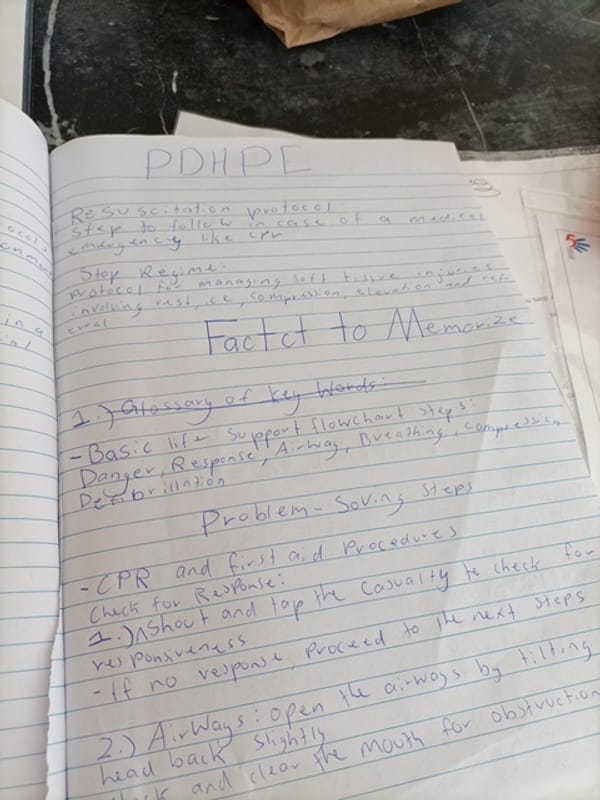 PDHPE
Resuscitation protocol:
Step to follow in case of a medical
emergency like cpr
Stop Regime:
Protocol for managing soft tissue injuries
involving rest, ice, compression, elevation and ref
erral
Factct to Memorize
1.) Glossary of key words:
- Basic life support flowchart steps:
Danger, Response, Airway, Breathing, compression
Defibrillation
Problem - Soving steps
- CPR and first aid Procedures
Check for Response:
1.) Shout and tap the Casualty to check for
responsiveness
- If no response, proceed to the next steps
2.) AirWays: open the airways by tilting
head back slightly
and clear the mouth for obstruction